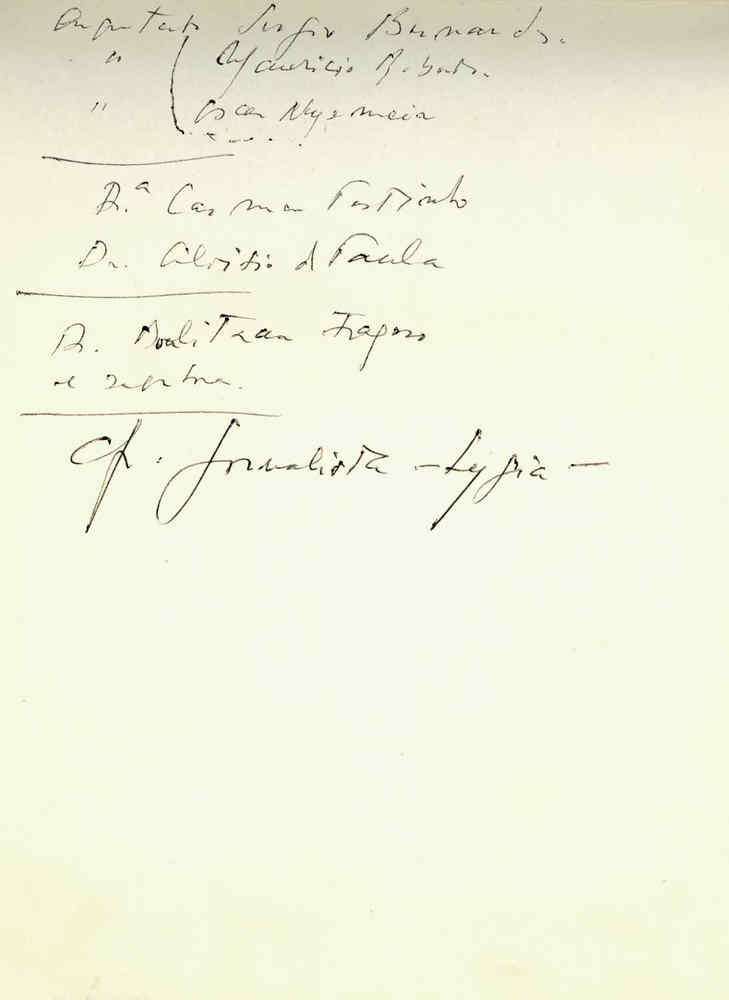 Arquitecto Sergio Bernardes.
" Mauricio Roberto.
" Oscar Nyemeir
Dr.ª Carmen Portinho
Dr. Aloisio de Paula
Dr. Fragoso
e senhora.
Cf. Jornalista - Lygia -